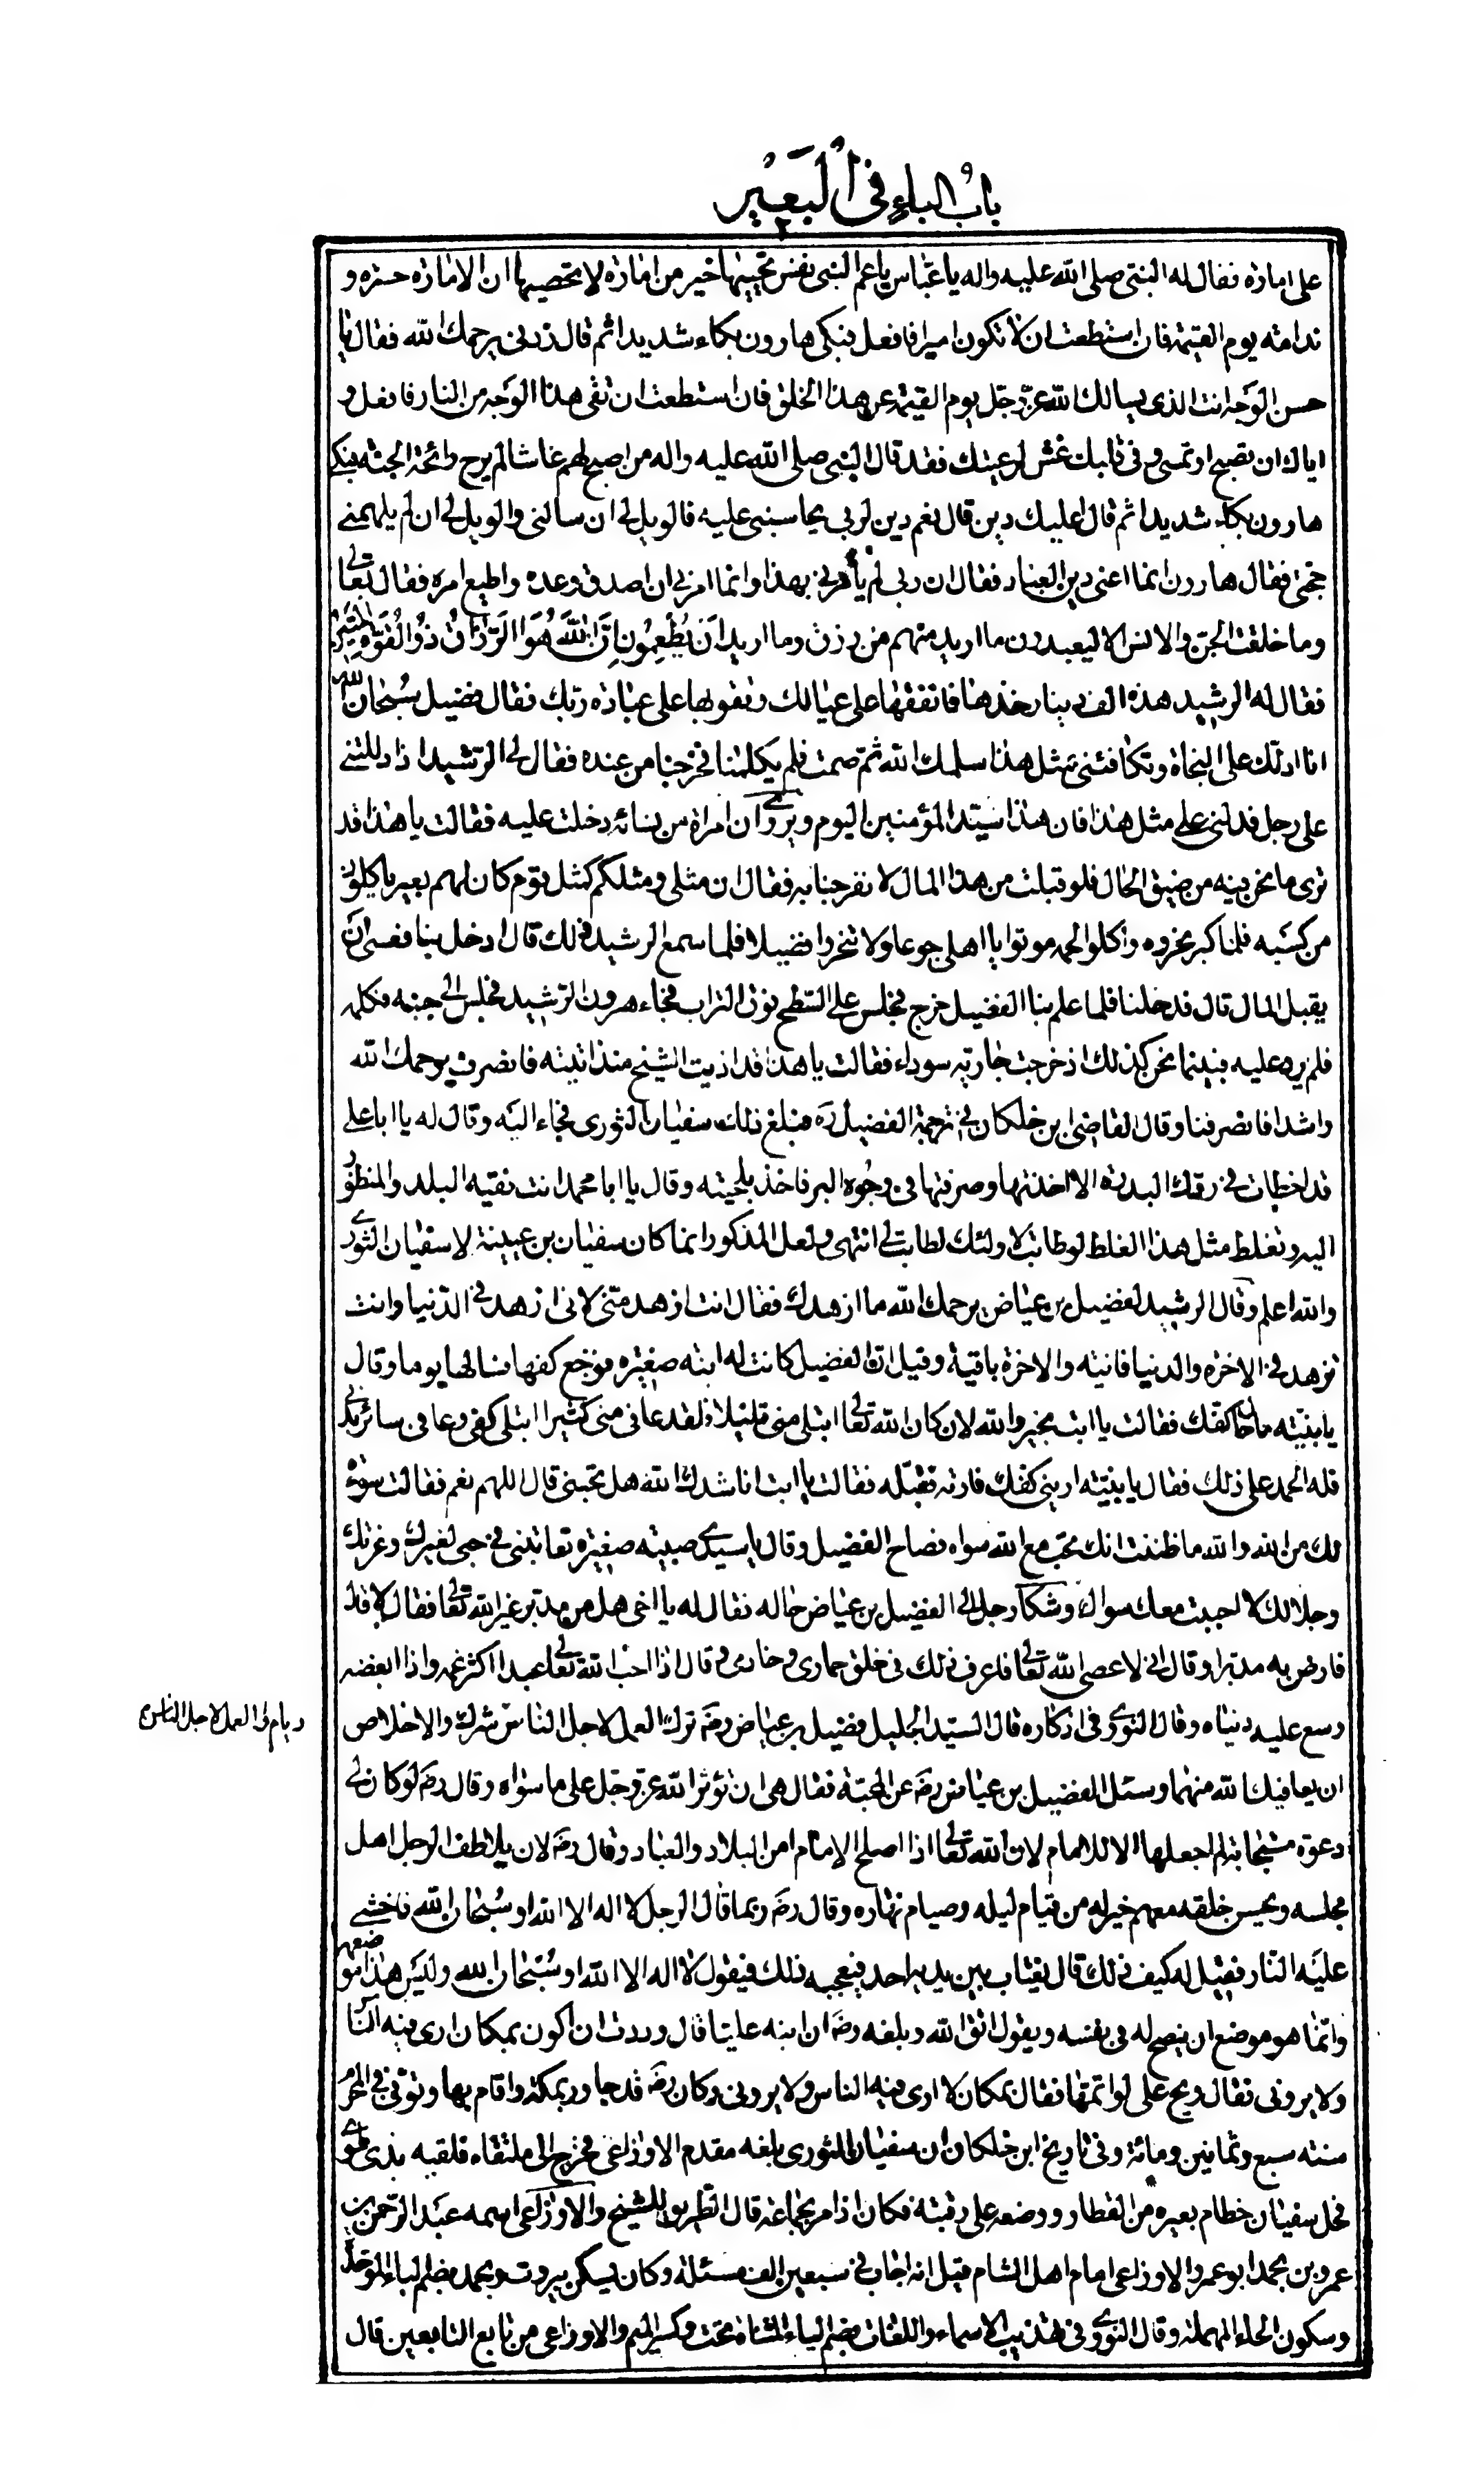 باب الباء في البعير
على امارة فقال له النبي صلى الله عليه واله يا عباس يا عم النبى نفس تحييها خير من امارة لا تحصيها ان الامارة حسرة و
ندامة يوم القيمة فان استطعت ان لا تكون اميرا فافعل فبكى هارون بكاء شديدا ثم قال زدنى يرحمك الله فقال يا
حسن الوجه انت الذى يسالك الله عز وجل يوم القيمة عن هذا الخلق فان استطعت ان تقى هذا الوجه من النار فافعل و
اياك ان تصبح او تمسى و فى قلبك غش لرعيتك فقد قال النبى صلى الله عليه واله من اصبح لهم غاشا لم يرح رائحة الجنة فبكى
هارون بكاء شديدا ثم قال اعليك دين قال نعم دين لربى يحاسبنى عليه فالويل لى ان سالنى والويل لى ان لم يلهمنى
حجتى فقال هارون انما اعنى دين العباد فقال ان ربى لم يأمرنى بهذا وانما امرنى ان اصدق وعده واطيع امره فقال تعالى
وما خلقت الجن والانس الا ليعبدون ما اريد منهم من رزق وما اريد ان يُطْعِمُونِ اِنَّ اللَّهَ هُوَ الرَّزَّاقُ ذُو الْقُوَّةِ الْمَتِينُ
فقال له الرشيد هذه الف دينار خذها فانفقها على عيالك وتقو بها على عبادة ربك فقال فضيل سُبْحان الله
انا ادلك على النجاة وتكافئنى بمثل هذا سلمك الله ثم صمت فلم يكلمنا فخرجنا من عنده فقال لى الرشيد اذا دللتنى
على رجل فدلنى على مثل هذا فان هذا سيد المؤمنين اليوم ويروى ان امراة من نسائه دخلت عليه فقالت يا هذا قد
ترى ما نحن فيه من ضيق الحال فلو قبلت من هذا المال لانفرجنا به فقال ان مثلى ومثلكم كمثل قوم كان لهم بعير ياكلون
من كسبه فلما كبر نحروه واكلوا لحمه موتوا يا اهلى جوعا ولا تنحروا فضيلا فلما سمع الرشيد ذلك قال ادخل بنا فعسى ان
يقبل المال قال فدخلنا فلما علم بنا الفضيل خرج فجلس على السطح فوق التراب فجاء هرون الرشيد فجلس الى جنبه فكلمه
فلم يرد عليه فبينما نحن كذلك اذ خرجت جارية سوداء فقالت يا هذا قد اذيت الشيخ منذ اتيته فانصرف يرحمك الله
راشدا فانصرفنا وقال القاضى ابن خلكان فى ترجمة الفضيل ره فبلغ ذلك سفيان الثورى فجاء اليه وقال له يا ابا على
قد اخطات فى ردك البدرة الا اخذتها وصرفتها فى وجُوه البر فاخذ بلحيته وقال يا ابا محمد انت فقيه البلد والمنظور
اليه وتغلط مثل هذا الغلط لو طابت لاولئك لطابت لى انتهى ولعل المذكور انما كان سفيان بن عيينة لا سفيان الثورى
والله اعلم وقال الرشيد لفضيل بن عياض يرحمك الله ما ازهدك فقال انت ازهد منى لانى ازهد فى الدنيا وانت
تزهد فى الاخرة والدنيا فانية والاخرة باقية وقيل ان الفضيل كانت له ابنة صغيره فوجع كفها فسالها يوما وقال
يا بنية ما حال كفك فقالت يا ابت بخير والله لان كان الله تعالى ابتلى منى قليلا فلقد عافى منى كثيرا ابتلى كفى وعافى سائر بدنى
فله الحمد على ذلك فقال يا بنية ارينى كفك فارته فقبله فقالت يا ابت اناشدك الله هل تحبنى قال اللهم نعم فقالت سوءة
لك من الله والله ما ظننت انك تحب مع الله سواه فصاح الفضيل وقال يا سيدى صبية صغيرة تعاتبنى فى حبى لغيرك وعزتك
وجلالك لا احببت معك سواك وشكا رجل الى الفضيل بن عياض حاله فقال له يا اخى هل من مدبر غير الله تعالى فقال لا قال
فارض به مدبرا وقال انى لاعصى الله تعالى فاعرف ذلك فى خلق حمارى وخادمى وقال اذا احب الله تعالى عبدا اكثر غمه واذا ابغضه
وسع عليه دنياه وقال النووى فى اذكاره قال السيد الجليل فضيل بن عياض رضه ترك العمل لاجل الناس شرك والاخلاص
ان يعافيك الله منهما وسئل الفضيل بن عياض رضه عن المحبة فقال هى ان تؤثر الله عز وجل على ما سواه وقال رضه لو كان لى
دعوة مستجابة لم اجعلها الا للامام لان الله تعالى اذا اصلح الامام امن البلاد والعباد وقال رضه لان يلاطف الرجل اهل
مجلسه ويحسن خلقه معهم خير له من قيام ليله وصيام نهاره وقال رضه ربما قال الرجل لا اله الا الله او سُبْحان الله فاخشى
عليه النار فقيل له كيف ذلك قال يغتاب بين يديه احد فيعجبه ذلك فيقول لا اله الا الله او سُبْحان الله وليس هذا موضعهما
وانما هو موضع ان ينصح له فى نفسه ويقول اتق الله وبلغه رضه ان ابنه عليا قال وددت ان اكون بمكان ارى فيه الناس
ولا يرونى فقال ويح على لو اتمها فقال بمكان لا ارى فيه الناس ولا يرونى وكان رضه قد جاور بمكة واقام بها وتوفى فى المحرم
سنة سبع وثمانين ومائة وفى تاريخ ابن خلكان ان سفيان الثورى بلغه مقدم الاوزاعى فخرج الى ملتقاه فلقيه بذى طوى
فحل سفيان خطام بعيره من القطار ووضعه على رقبته فكان اذا مر بجماعة قال الطريق للشيخ والاوزاعى اسمه عبد الرحمن بن
عمرو بن يحمد ابو عمرو الاوزاعى امام اهل الشام قيل انه اجاب فى سبعين الف مسئلة وكان يسكن بيروت ويحمد بضم الياء الموحدة
وسكون الحاء المهملة وقال النووى فى تهذيب الاسماء واللغات بضم الياء المثناة تحت وكسر الميم والاوزاعى من تابع التابعين قال
العمل لاجل الناس